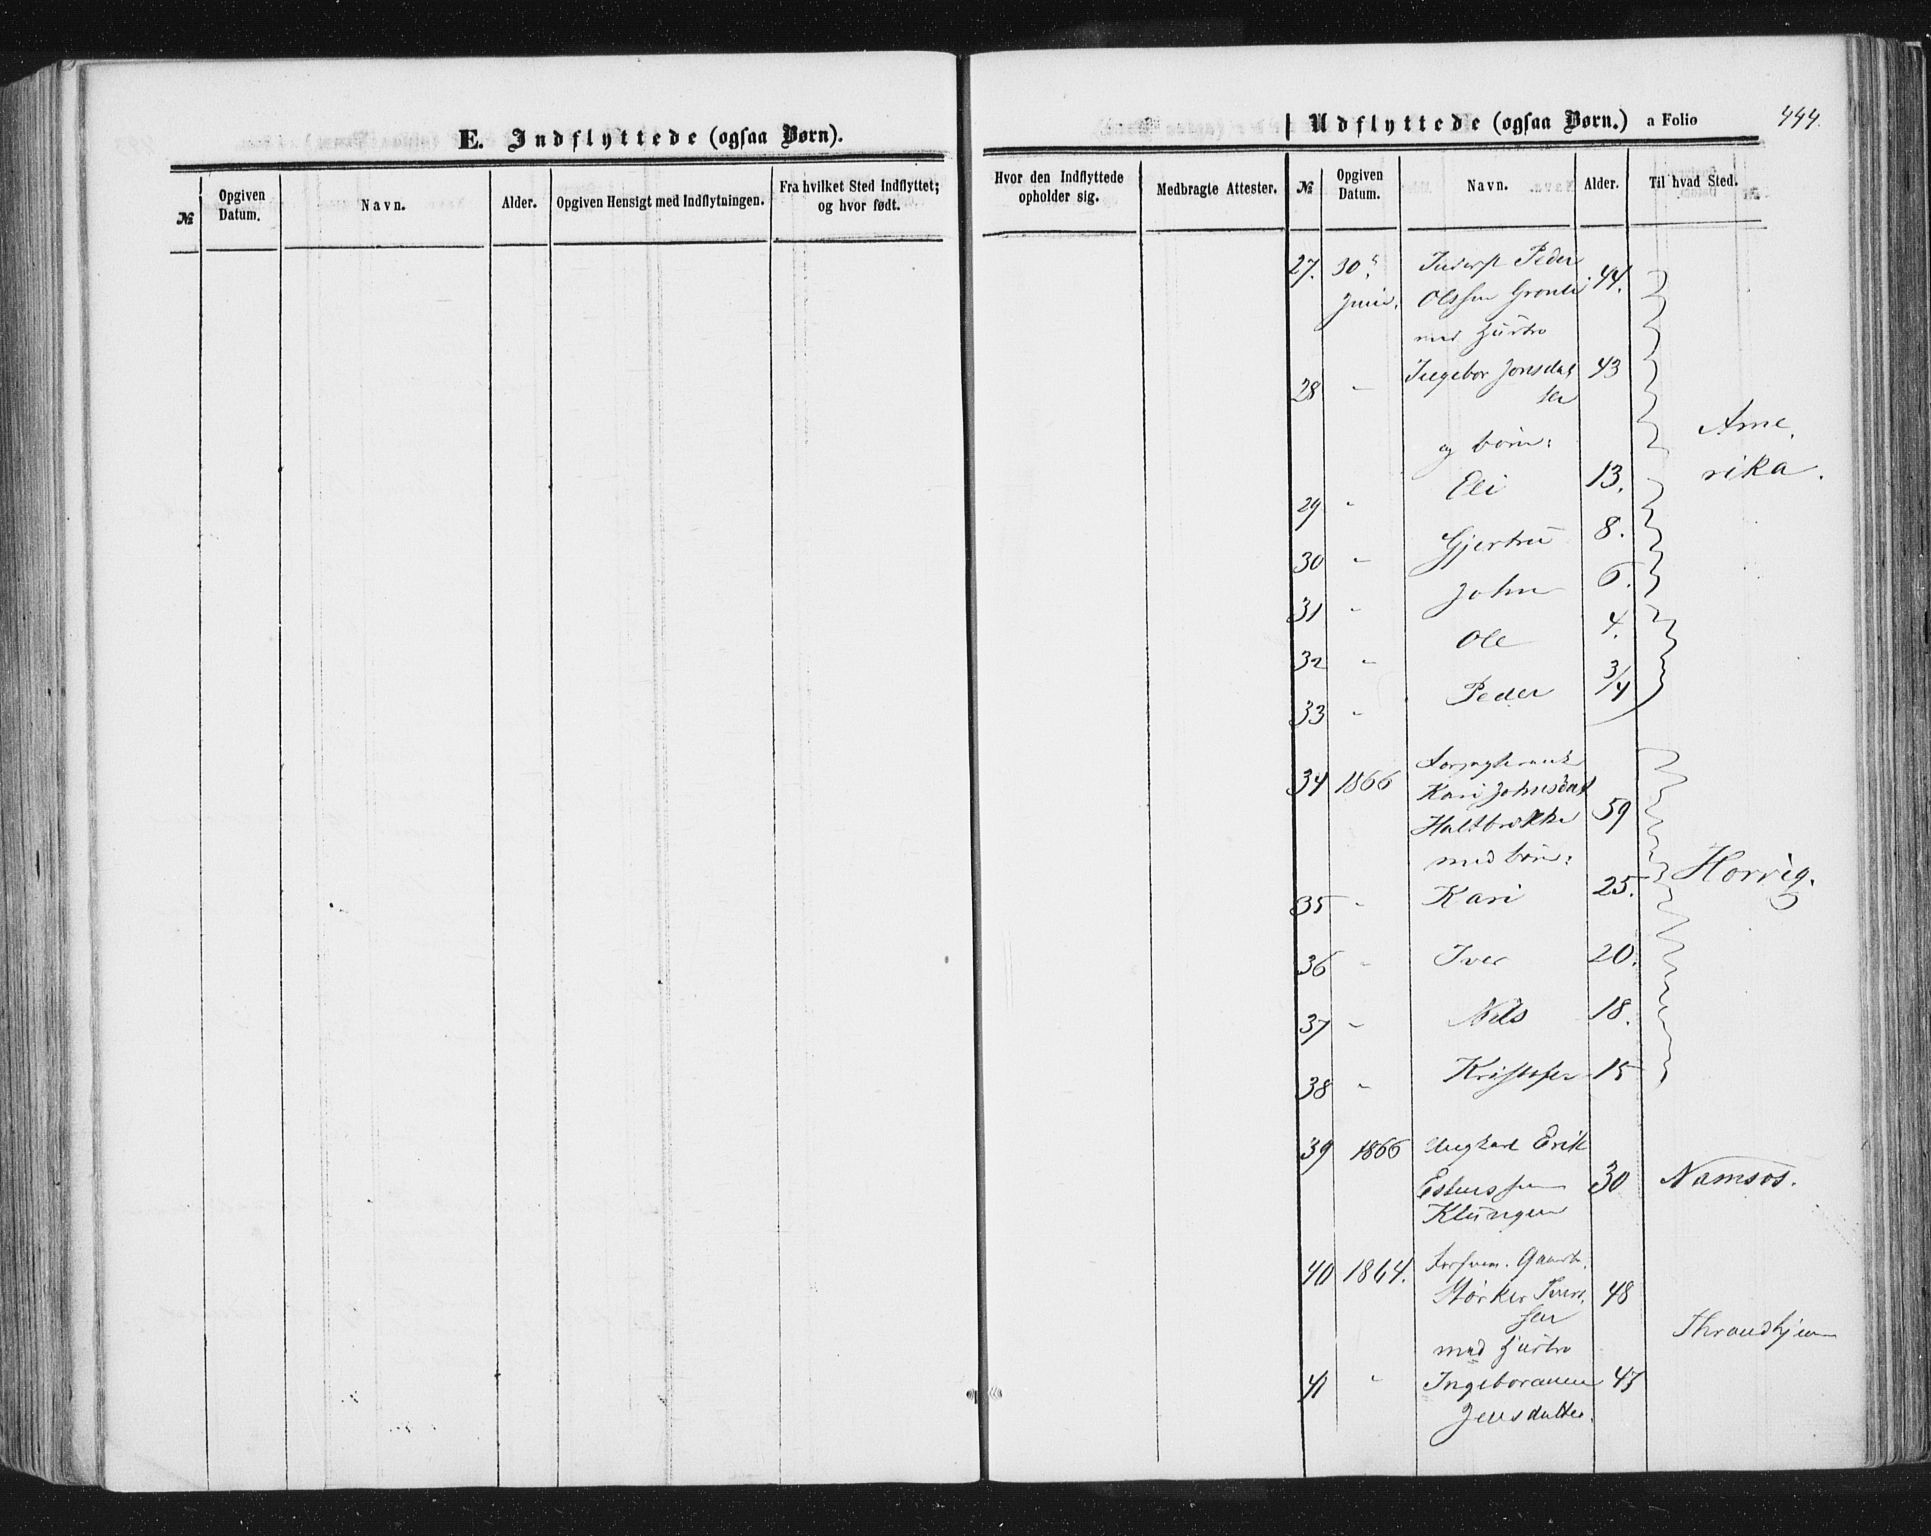 E. Indflyttede (ogsaa Børn).
№
Opgiven Datum.
Navn.
Alder.
Opgiven Hensigt med Indflytningen.
Fra hvilket Sted Indflyttet; og hvor født.
Udflyttede (ogsaa Børn.) a Folio 444.
Hvor den Indflyttede opholder sig.
Medbragte Attester.
№
Opgiven Datum.
Navn.
Alder.
Til hvad Sted.
27. 30 Inderst Peder 44.
Juni. Olssen Gronli
med Hustro
28 - Ingebor Jonsdat 43
ter
og börn:
Ame
rika.
29 - Eli 13.
30 - Gjertru 8.
31 - John 6.
32 - Ole 4.
33 - Peder 3/4
34 1866
Kari Johnsdat
Haltbrække 59
med börn:
Horvig.
35 - Kari 25.
36 - Iver 20.
37 - Nils 18.
38 - Kristofer 15
39 1866 Ungkarl Erik
Estenssen 30 Namsos.
Klungen
40 1864. Forhven. Gaardb.
Størker Ivers 48
sen
Throndhjem
med Hustro
41 - Ingeboranna 47
Jensdatter.